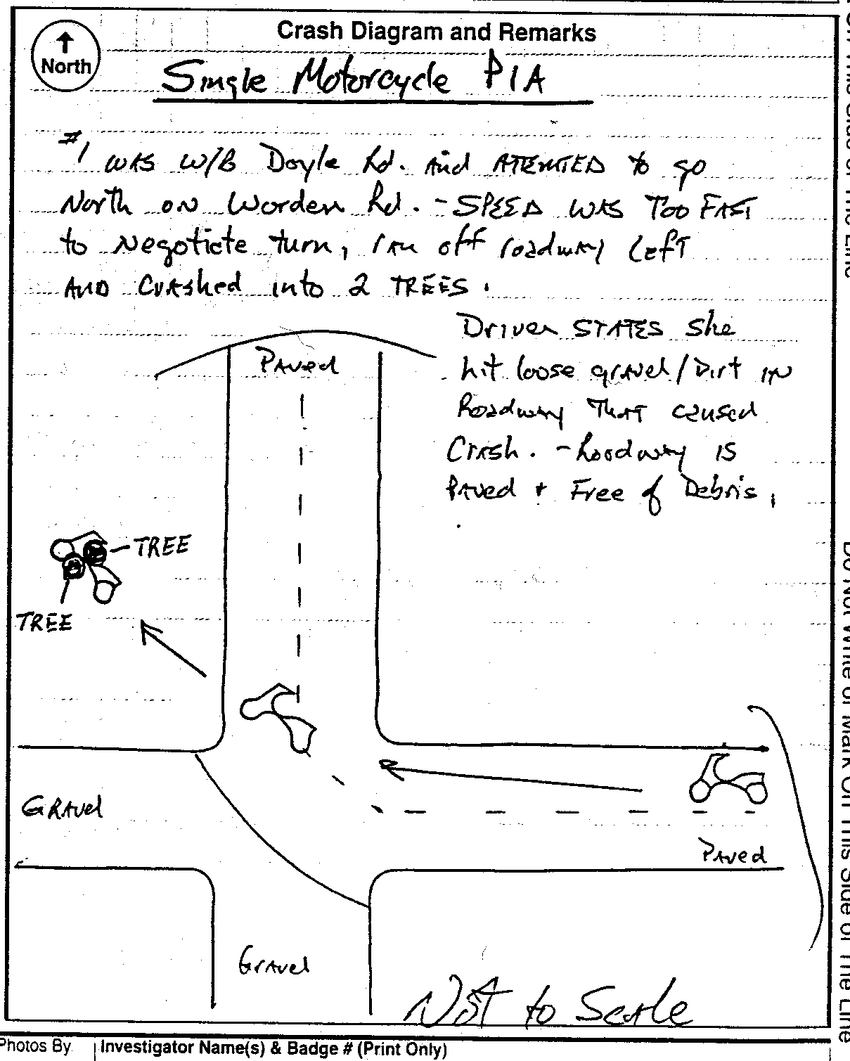 Crash Diagram and Remarks
North
Single Motorcycle PIA
#1 was W/B Doyle Rd. and ATEMTED to go
North on Worden Rd. - SPEED WAS TOO FAST
to Negotiate turn, ran off roadway Left
AND Crashed into 2 TREES.
Driver STATES She
hit loose gravel/Dirt IN
Roadway THAT caused
Crash. - Roadway IS
PAved + Free of Debris,
PAved
TREE
TREE
GRAvel
PAved
Gravel
Not to Scale
Photos By
Investigator Name(s) & Badge # (Print Only)
On This Side of The Line
Do Not Write or Mark On This Side of The Line